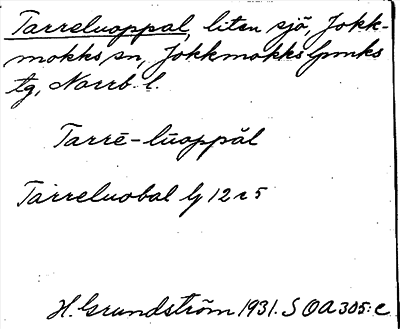 Tarreluoppal, liten sjö, Jokk-
mokks sn, Jokkmokks lpmks
tg, Norrb. l.
Tarrē-lūoppăl
Tarreluobal lj 12 r 5
H. Grundström 1931. S OA 305:c